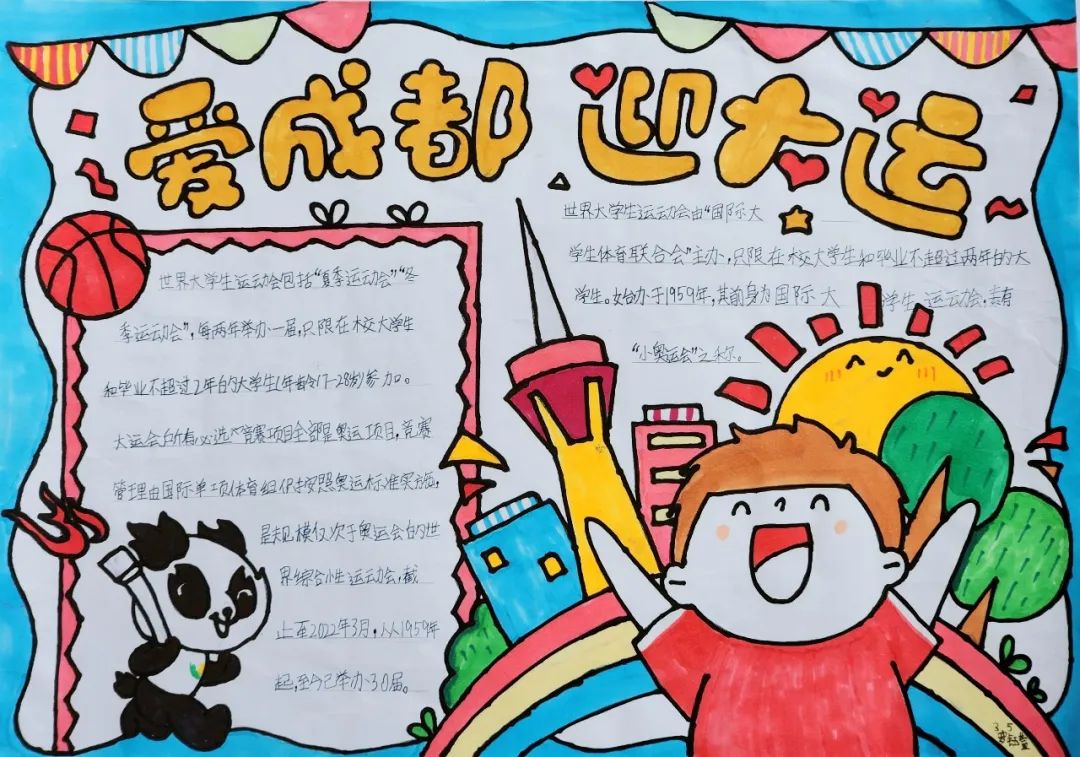 爱成都 迎大运
世界大学生运动会包括“夏季运动会”“冬
季运动会”,每两年举办一届,只限在校大学生
和毕业不超过2年的大学生(年龄17-28岁)参加。
大运会的所有必选竞赛项目全部是奥运项目,竞赛
管理由国际单项体育组织按照奥运标准实施,
是规模仅次于奥运会的世
界综合性运动会,截
止至2022年3月,从1959年
起,至今已举办30届。
世界大学生运动会由“国际大
学生体育联合会”主办,只限在校大学生和毕业不超过两年的大
学生。始办于1959年,其前身为国际大学生运动会,素有
“小奥运会”之称。
3.5